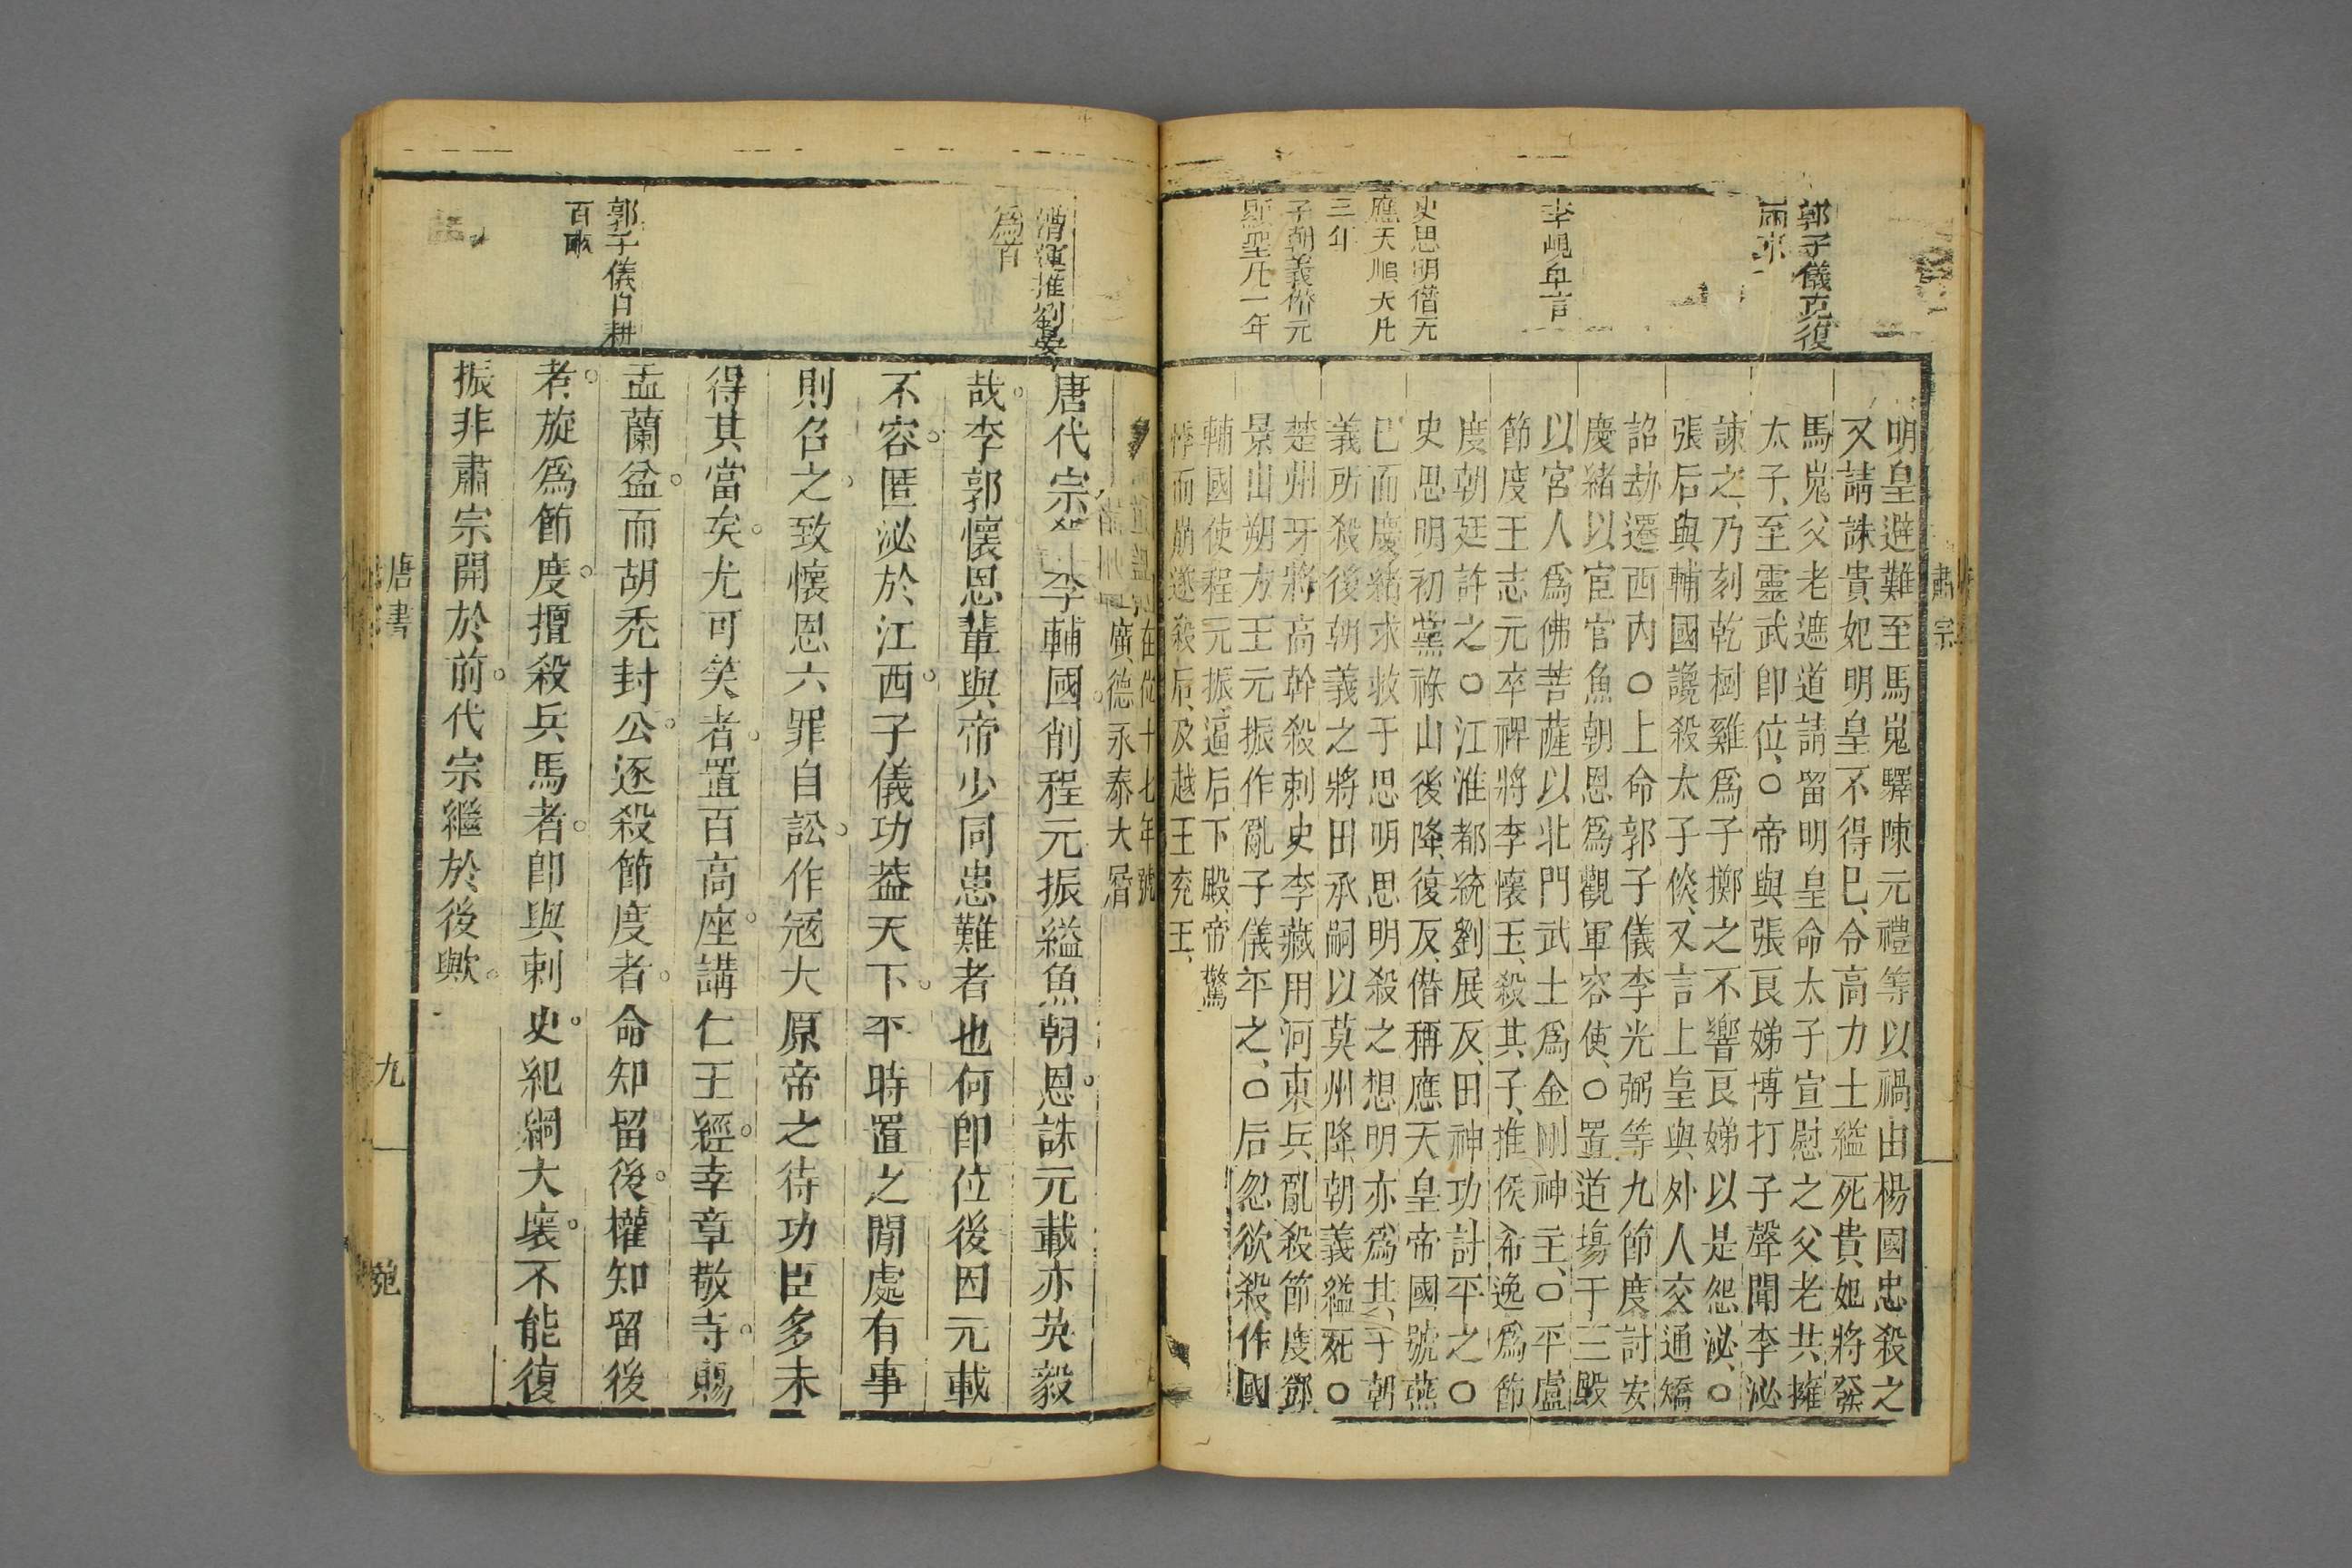 郭子儀克復
兩京
李峴卑言
史思明僭元
應天順天凡
三年
子朝義僭元
顯聖凡一年
肅宗
明皇避難至馬嵬驛陳元禮等以禍由楊國忠殺之
又請誅貴妃明皇不得已、令高力士縊死貴妃將發
馬嵬、父老遮道請留明皇命太子宣慰之父老共擁
太子、至靈武卽位、○帝與張良娣博打子聲聞李泌
諫之、乃刻乾樹雞爲子擲之不響良娣以是怨泌、○
張后與輔國讒殺太子倓、又言上皇與外人交通矯
詔劫遷西內○上命郭子儀李光弼等九節度討安
慶緒以宦官魚朝恩爲觀軍容使、○置道塲于三殿
以宮人爲佛菩薩以北門武士爲金剛神主、○平盧
節度王志元卒裨將李懷玉、殺其子、推侯希逸爲節
度朝廷許之○江淮都統劉展反、田神功計平之○
史思明初黨祿山後降、復反、僭稱應天皇帝國號燕
已而慶緒求救于思明思明殺之想明亦爲其子朝
義所殺後朝義之將田承嗣以莫州降、朝義縊死○
楚州牙將高幹殺刺史李藏用河東兵亂殺節度鄧
景山朔方王元振作亂子儀平之、○后忽欲殺作國
輔國使程元振、逼后下殿、帝驚
悸而崩遂殺后、及越王兗王、
漕運推劉晏
爲首
郭子儀自耕
百畝
在位十七年號
廣德永泰大曆
唐代宗李輔國削程元振縊魚朝恩誅元載亦英毅
哉李郭懷恩輩與帝少同患難者也何卽位後因元載
不容匿泌於江西子儀功葢天下平時置之閒處有事
則召之致懷恩六罪自訟作冦大原帝之待功臣多未
得其當矣尤可笑者置百高座講仁王經幸章敬寺賜
盂蘭盆而胡禿封公逐殺節度者命知留後權知留後
者旋爲節度擅殺兵馬者卽與刺史紀綱大壞不能復
振非肅宗開於前代宗繼於後歟
唐書
九